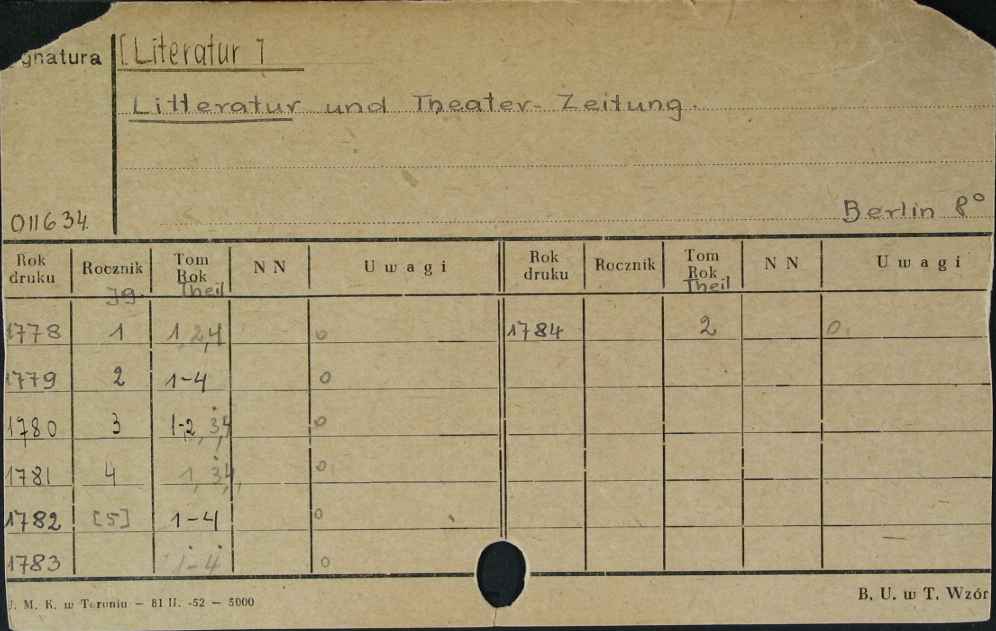 gnatura [Literatur]
Litteratur und Theater-Zeitung.
011634 Berlin 8°
Rok druku Rocznik Jg. Tom Rok Theil NN Uwagi Rok druku Rocznik Tom Rok Theil NN Uwagi
1778 1 1,2,4 0 1784 2 0.
1779 2 1-4 0
1780 3 1-2, 3,4 0
1781 4 1, 3,4, 0
1782 [5] 1-4 0
1783 1-4 0
J. M. K. w Toruniu — 81 II. -52 — 5000 B. U. w T. Wzór